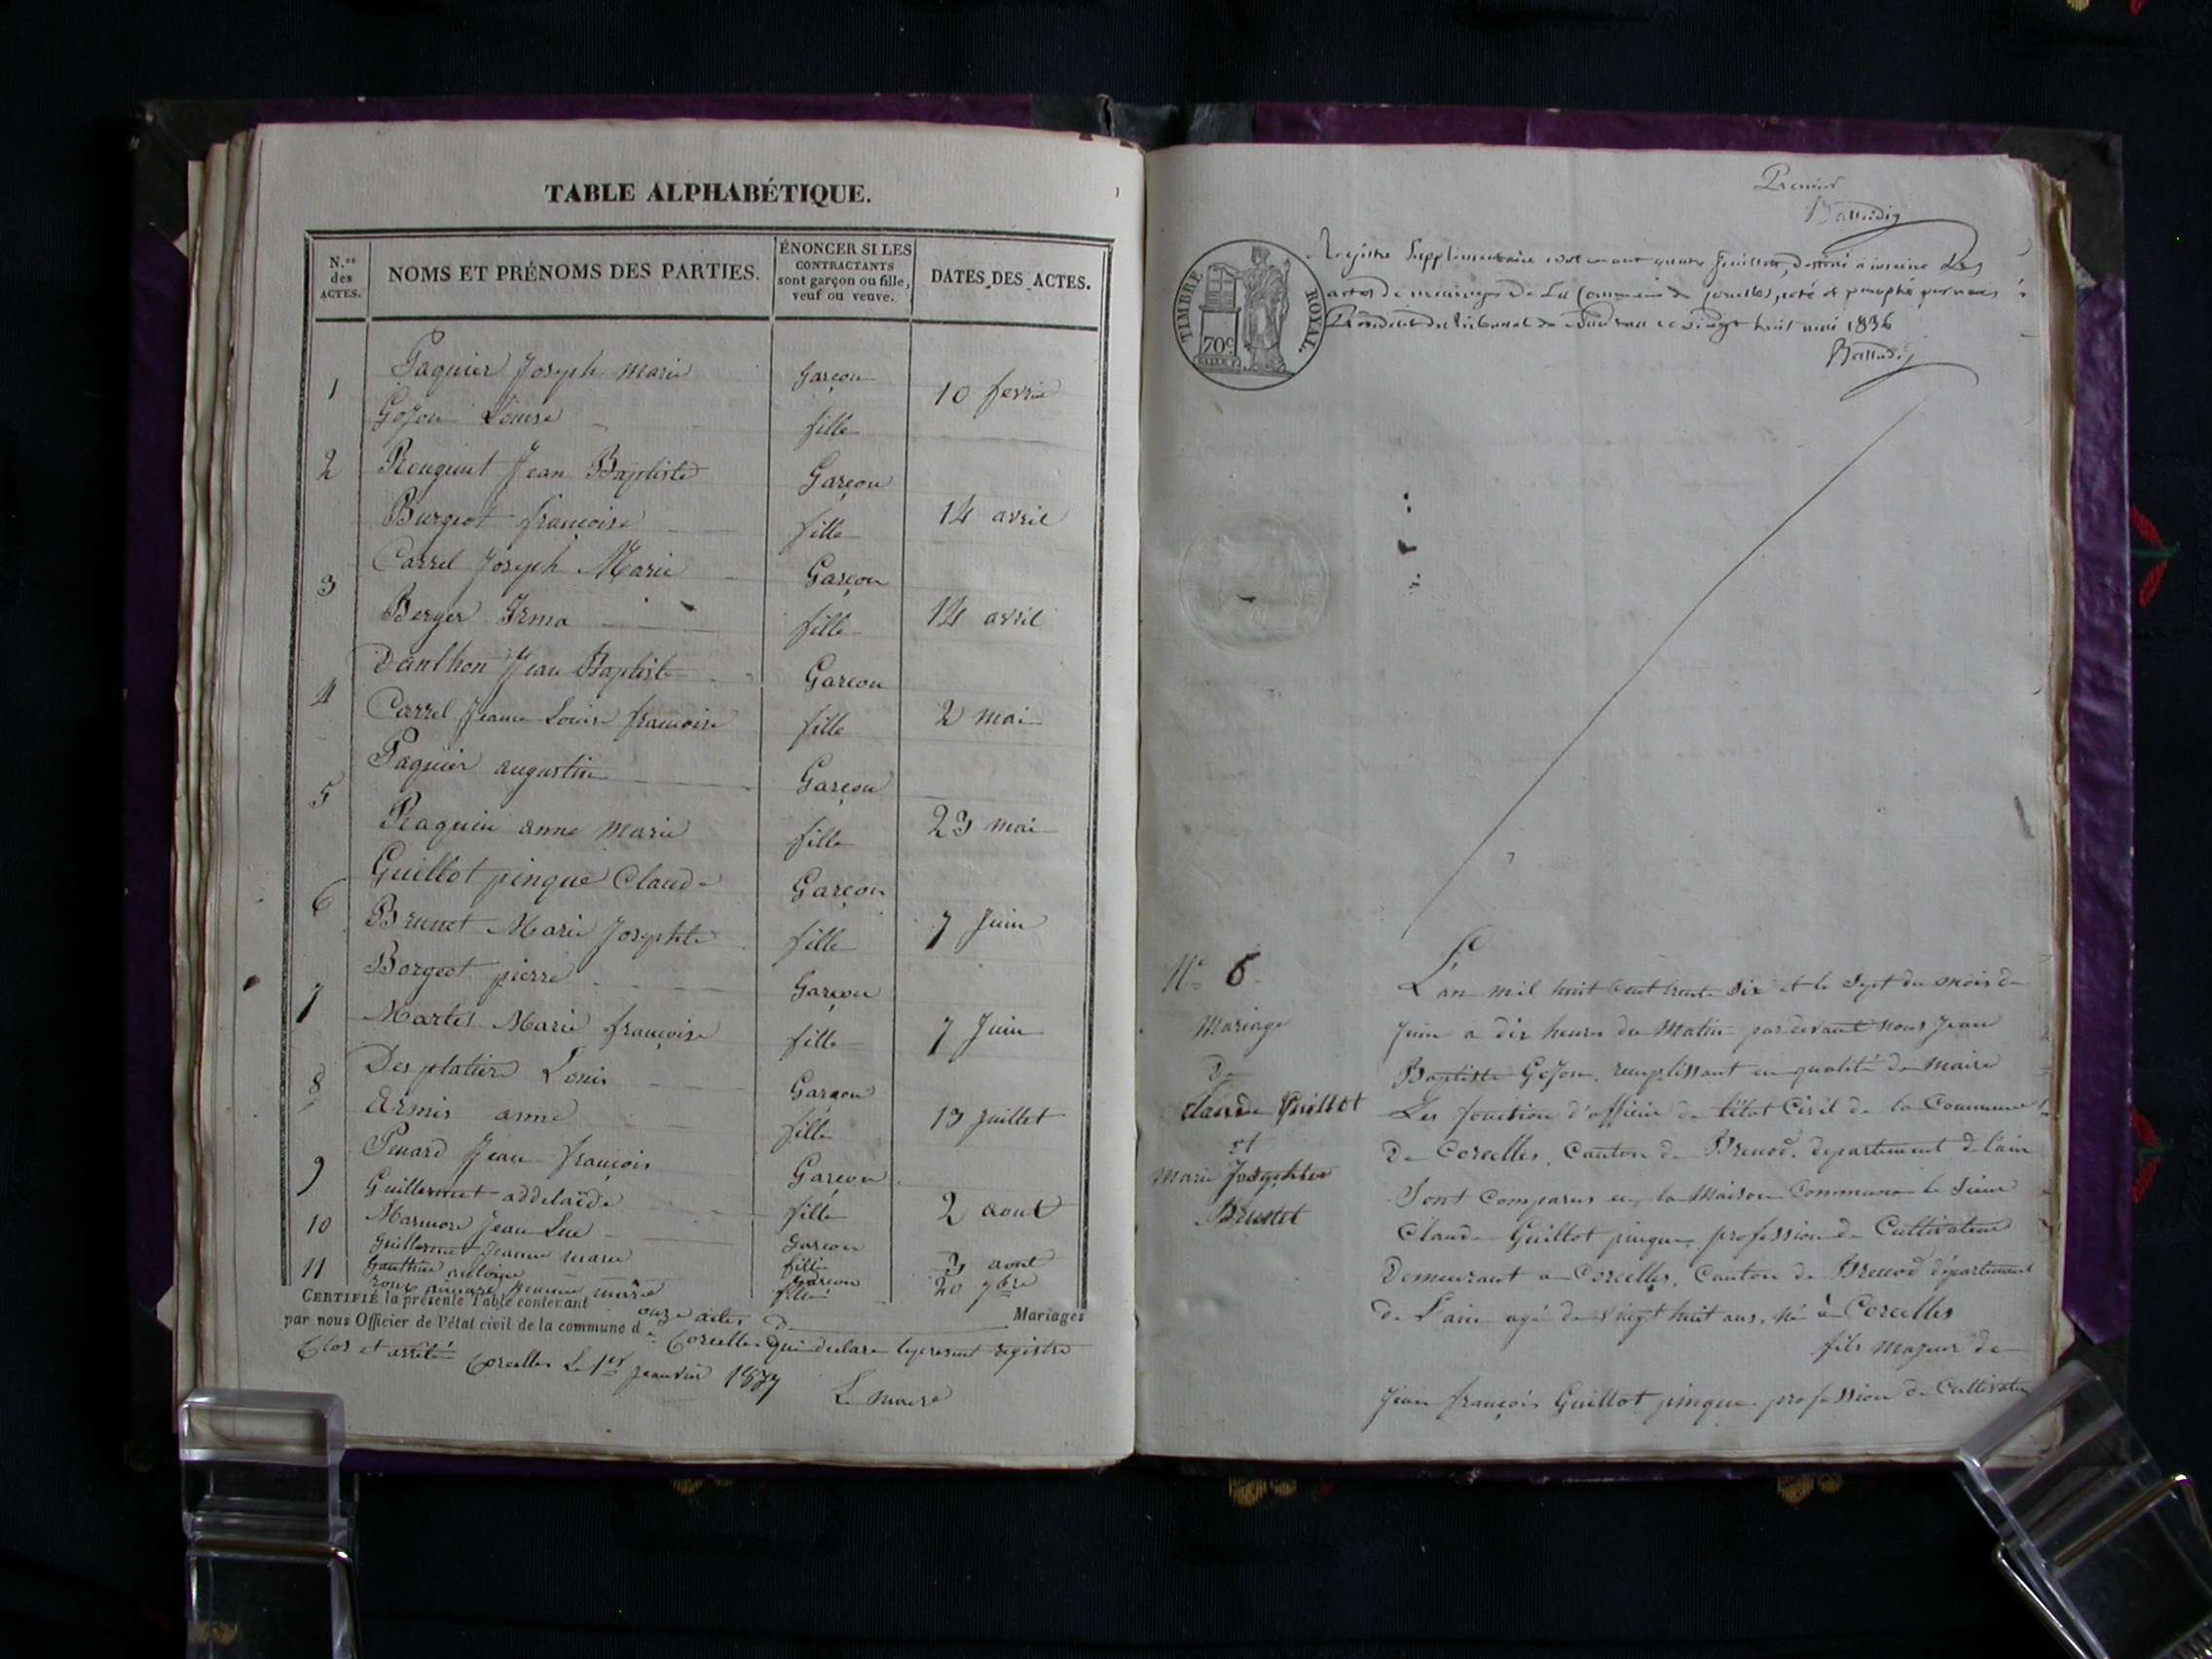 TABLE ALPHABÉTIQUE.
N.os des ACTES.
NOMS ET PRÉNOMS DES PARTIES.
ÉNONCER SI LES CONTRACTANTS sont garçon ou fille, veuf ou veuve.
DATES DES ACTES.
1 Paquier Joseph Marie Garçon
Gojon Louise fille 10 fevrier
2 Rouquint Jean Baptiste Garçon
Burgeot françoise fille 14 avril
3 Carrel Joseph Marie Garçon
Berger Irma fille 14 avril
4 Danthon Jean Baptiste Garçon
Carrel Jeanne Louise francoise fille 2 mai
5 Paquier augustin Garçon
Raquin anne Marie fille 23 mai
6 Guillot pinque Claude Garçon
Brunet Marie Josephte fille 7 Juin
7 Borgeot pierre Garçon
Martel Marie françoise fille 7 Juin
8 Desplatière Louis Garçon
Ermis anne fille 13 juillet
9 Penard Jean françois Garçon
Guillermet addelaïde fille 2 aout
10 Marmon Jean Luc Garçon
Guillermet Jeanne marie fille aout
11 Gauthier antoine Garçon
Jeanne marie fille 20 9bre
CERTIFIÉ la présente Table contenant onze actes de Mariages
par nous Officier de l'état civil de la commune de Corcelles qui declare le present registre
Clos et arrêté Corcelles Le 1er Janvier 1837
Le maire
Premier
Registre Supplémentaire contenant quatre feuillets, destiné à inscrire Les
actes de mariages de La Commune de Corcelles, coté et paraphé par nous
Président du tribunal de Nantua le vingt huit mai 1836
TIMBRE ROYAL.
70c
N° 6
Mariage
De
claude Guillot
et
Marie Josephte
Brunet
L'an mil huit cent trente six et le Sept du mois de
Juin a dix heures du Matin pardevant nous Jean
Baptiste Gojon, remplissant en qualité de maire
Les fonction d'officier de l'état Civil de la Commune
De Corcelles, Canton de Brenod, departement de l'ain
Sont Comparus en la Maison Commune le Sieur
Claude Guillot pinque, profession de Cultivateur
Demeurant a Corcelles, Canton de Brenod département
de L'ain agé de vingt huit ans, né à Corcelles
fils majeur de
Jean françois Guillot pinque profession de Cultivateur